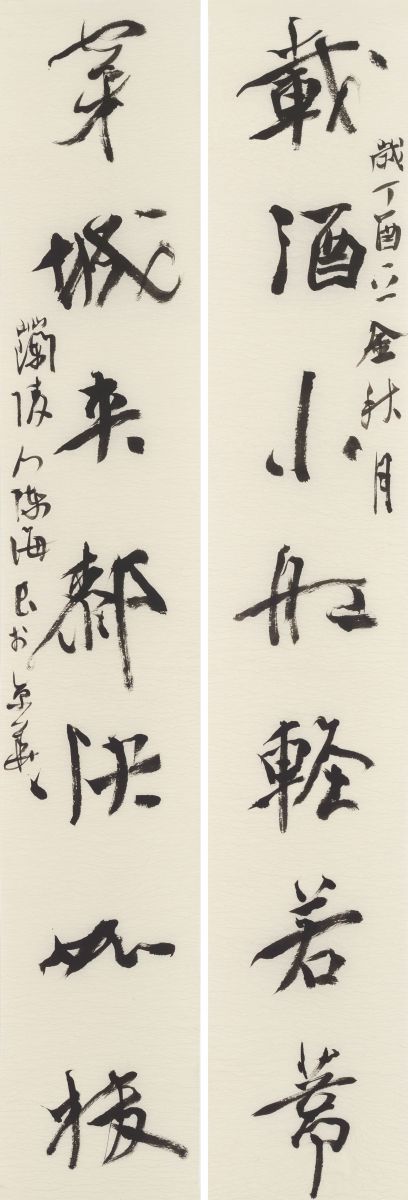 歲丁酉之金秋月
載酒小船軽若
穿城来快如梭
蘭陵人陳海良於京華